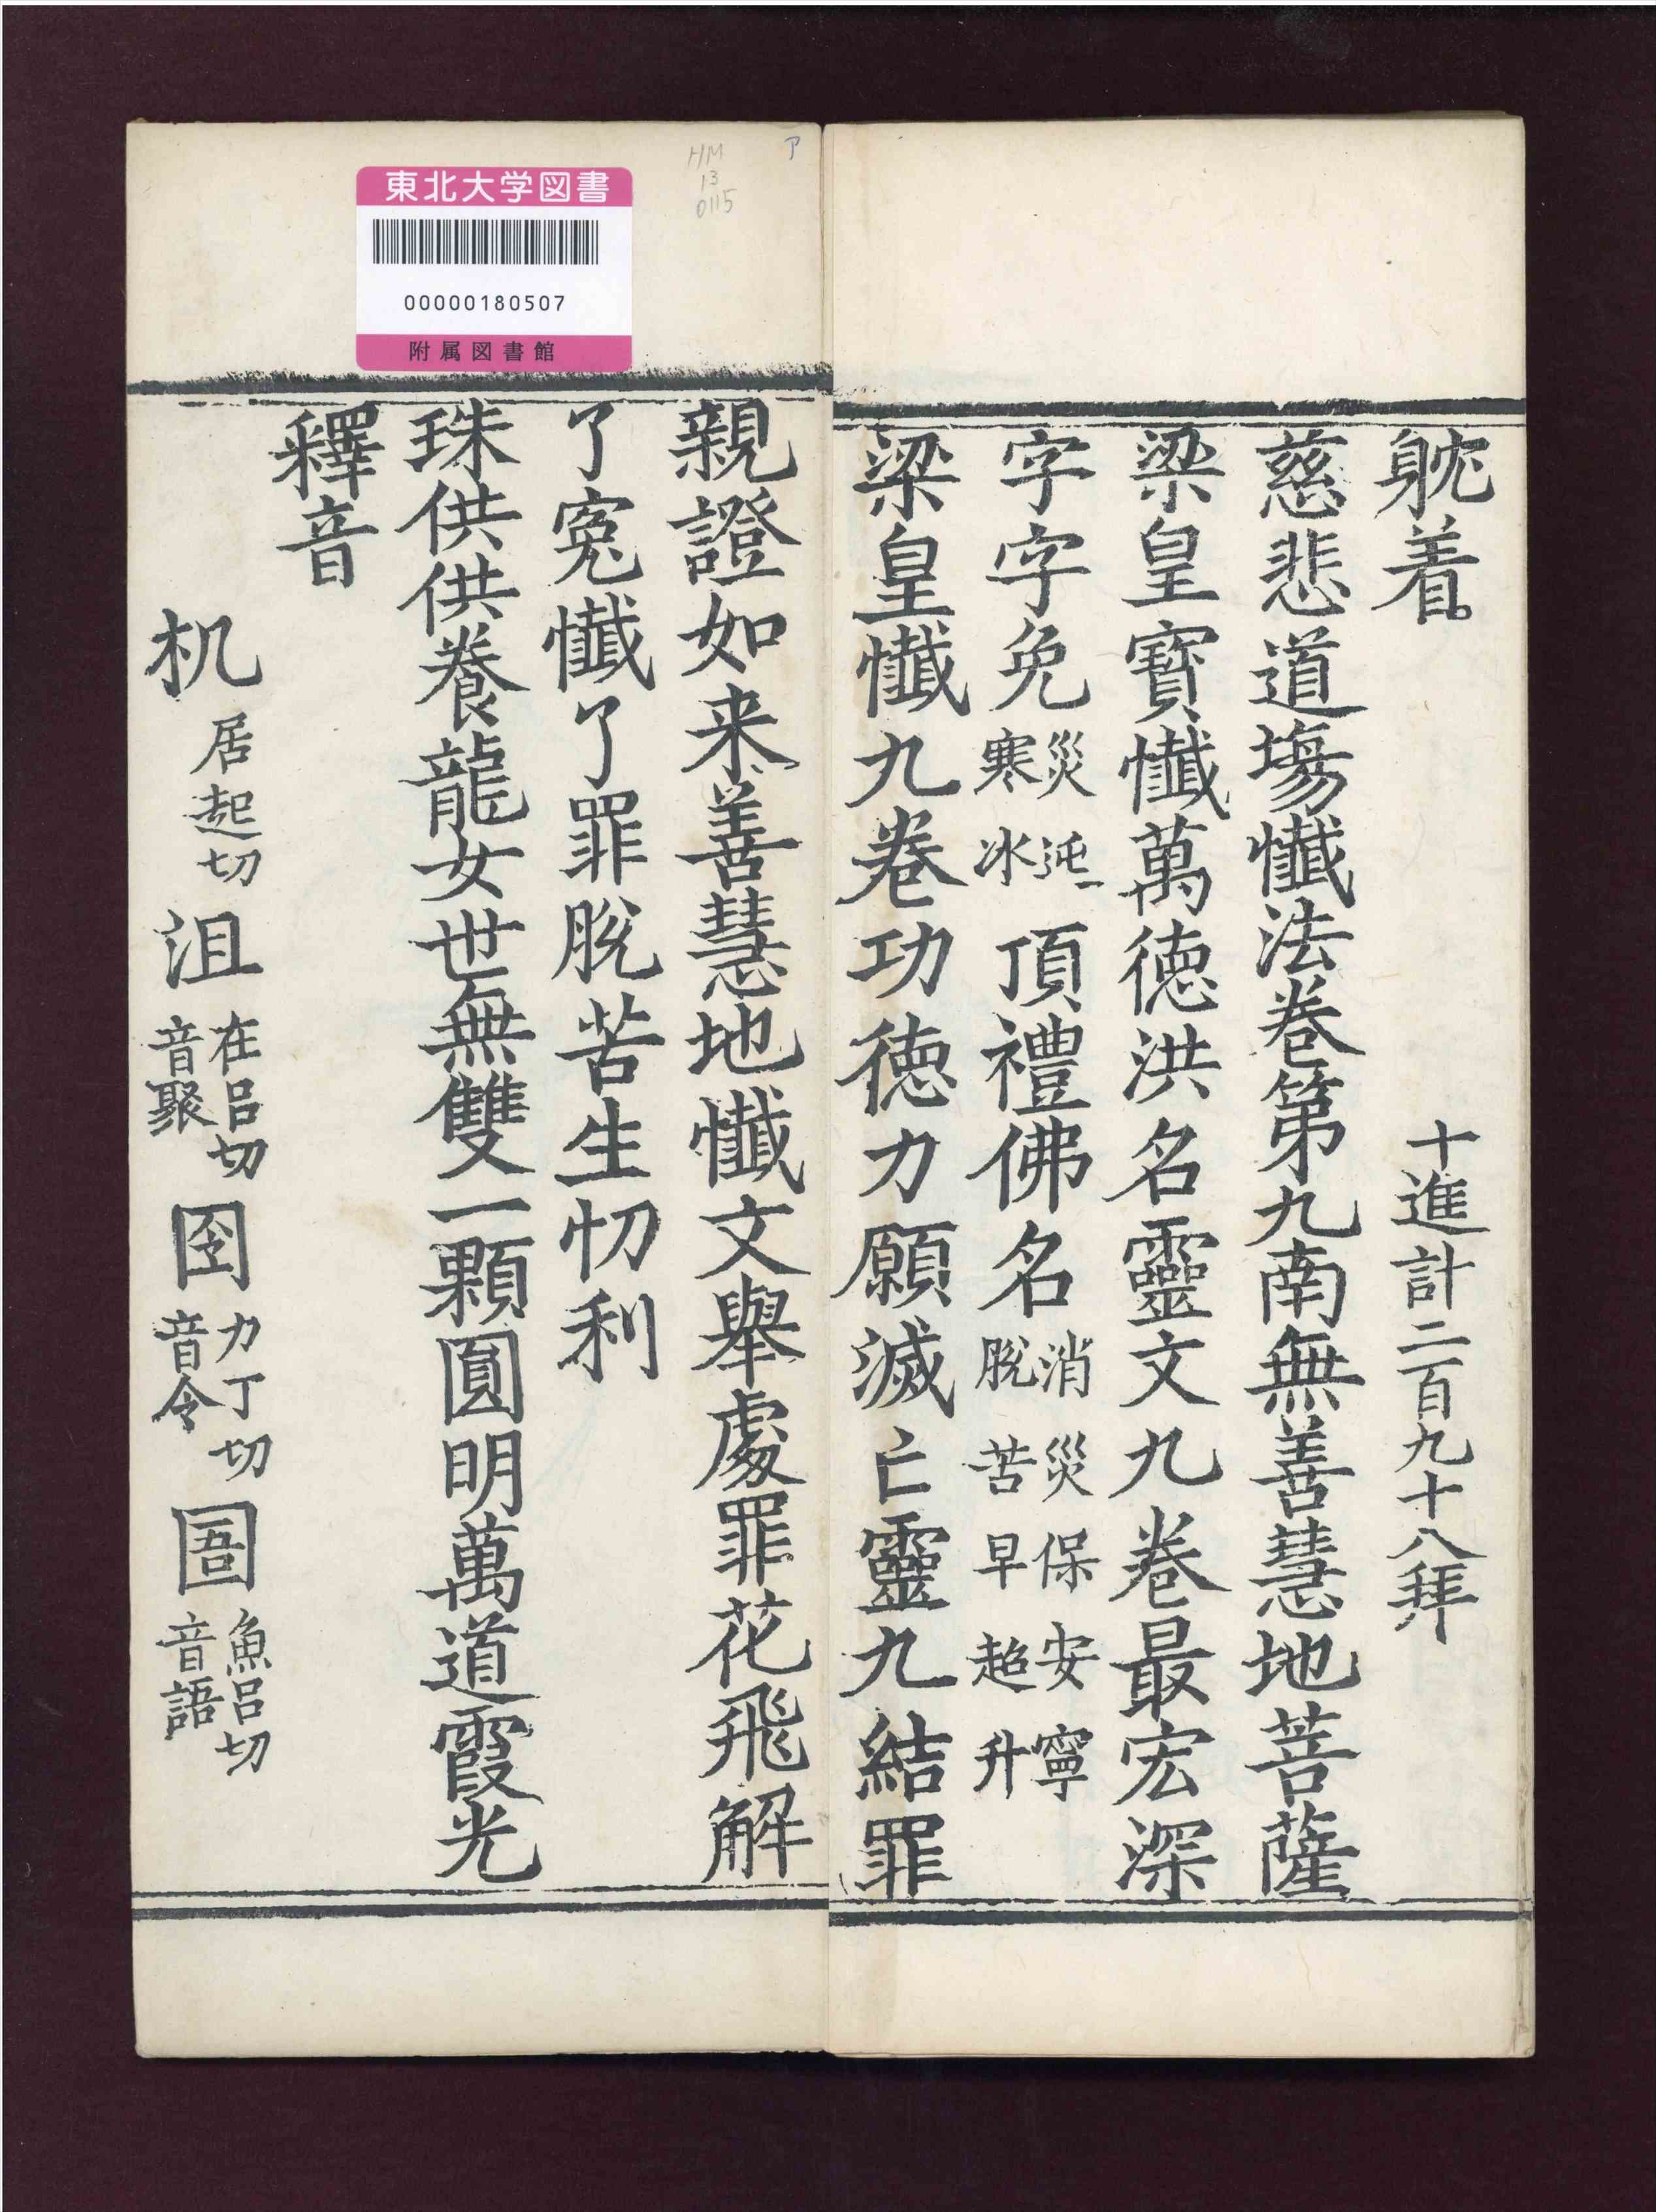 躭着 十進計二百九十八拜
慈悲道塲懺法卷第九南無善慧地菩薩
梁皇寶懺萬德洪名靈文九卷最宏深
字字免災迍寒冰頂禮佛名消災保安寧脫苦早超升
梁皇懺九卷功德力願滅亡靈九結罪
親證如来善慧地懺文舉處罪花飛解
了寃懺了罪脫苦生忉利
珠供供養龍女世無雙一顆圓明萬道霞光
釋音
机居起切沮在呂切音聚囹力丁切音令圄魚呂切音語
HM
13
0115
ア
東北大学図書
00000180507
附属図書館